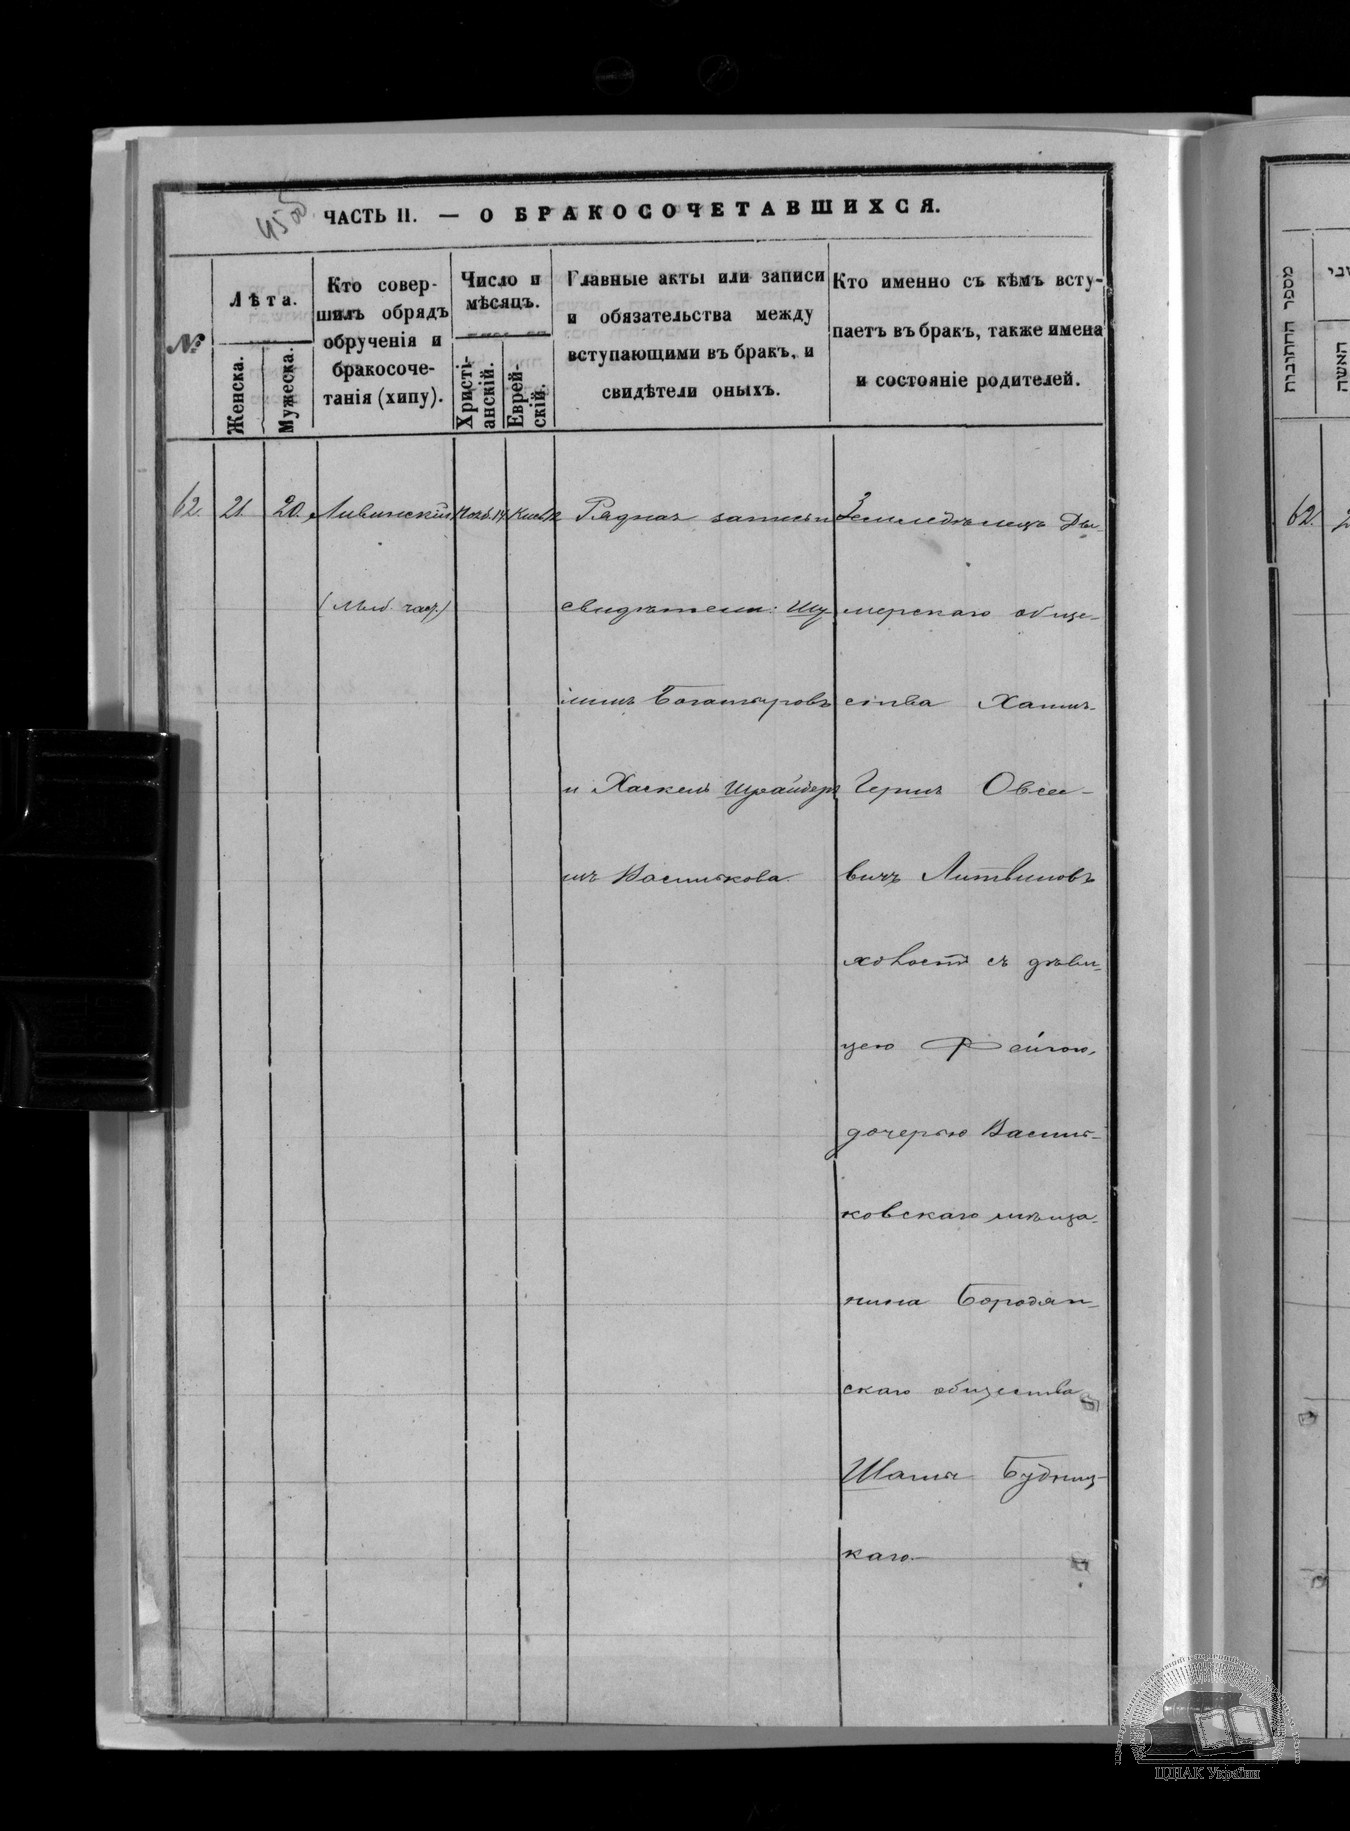 45об
ЧАСТЬ II. — О БРАКОСОЧЕТАВШИХСЯ.
№
Лѣта.
Женска.
Мужеска.
Кто совер-
шилъ обрядъ
обрученія и
бракосоче-
танія (хипу).
Число и
мѣсяцъ.
Христі-
анскій.
Еврей-
скій.
Главные акты или записи
и обязательства между
вступающими въ бракъ, и
свидѣтели оныхъ.
Кто именно съ кѣмъ всту-
паетъ въ бракъ, также имена
и состояніе родителей.
62.
21.
20.
Ливинскій
Нояб. 14
12
Рядная запись и
свидѣтели: Шу
лимъ Богатыровъ
и Хаскель Шрайберъ
изъ Василькова.
Земледѣлецъ Ды-
мерскаго обще-
ства Хаимъ-
Гершъ Овсее-
вичъ Литвиновъ
холостъ съ дѣви-
цею Фейгою,
дочерью Василь-
ковскаго мѣща-
нина Бородян-
скаго общества
Шаи Будниц-
каго.
מספר החתונות
האשה
62.
2
ЦДІАК України